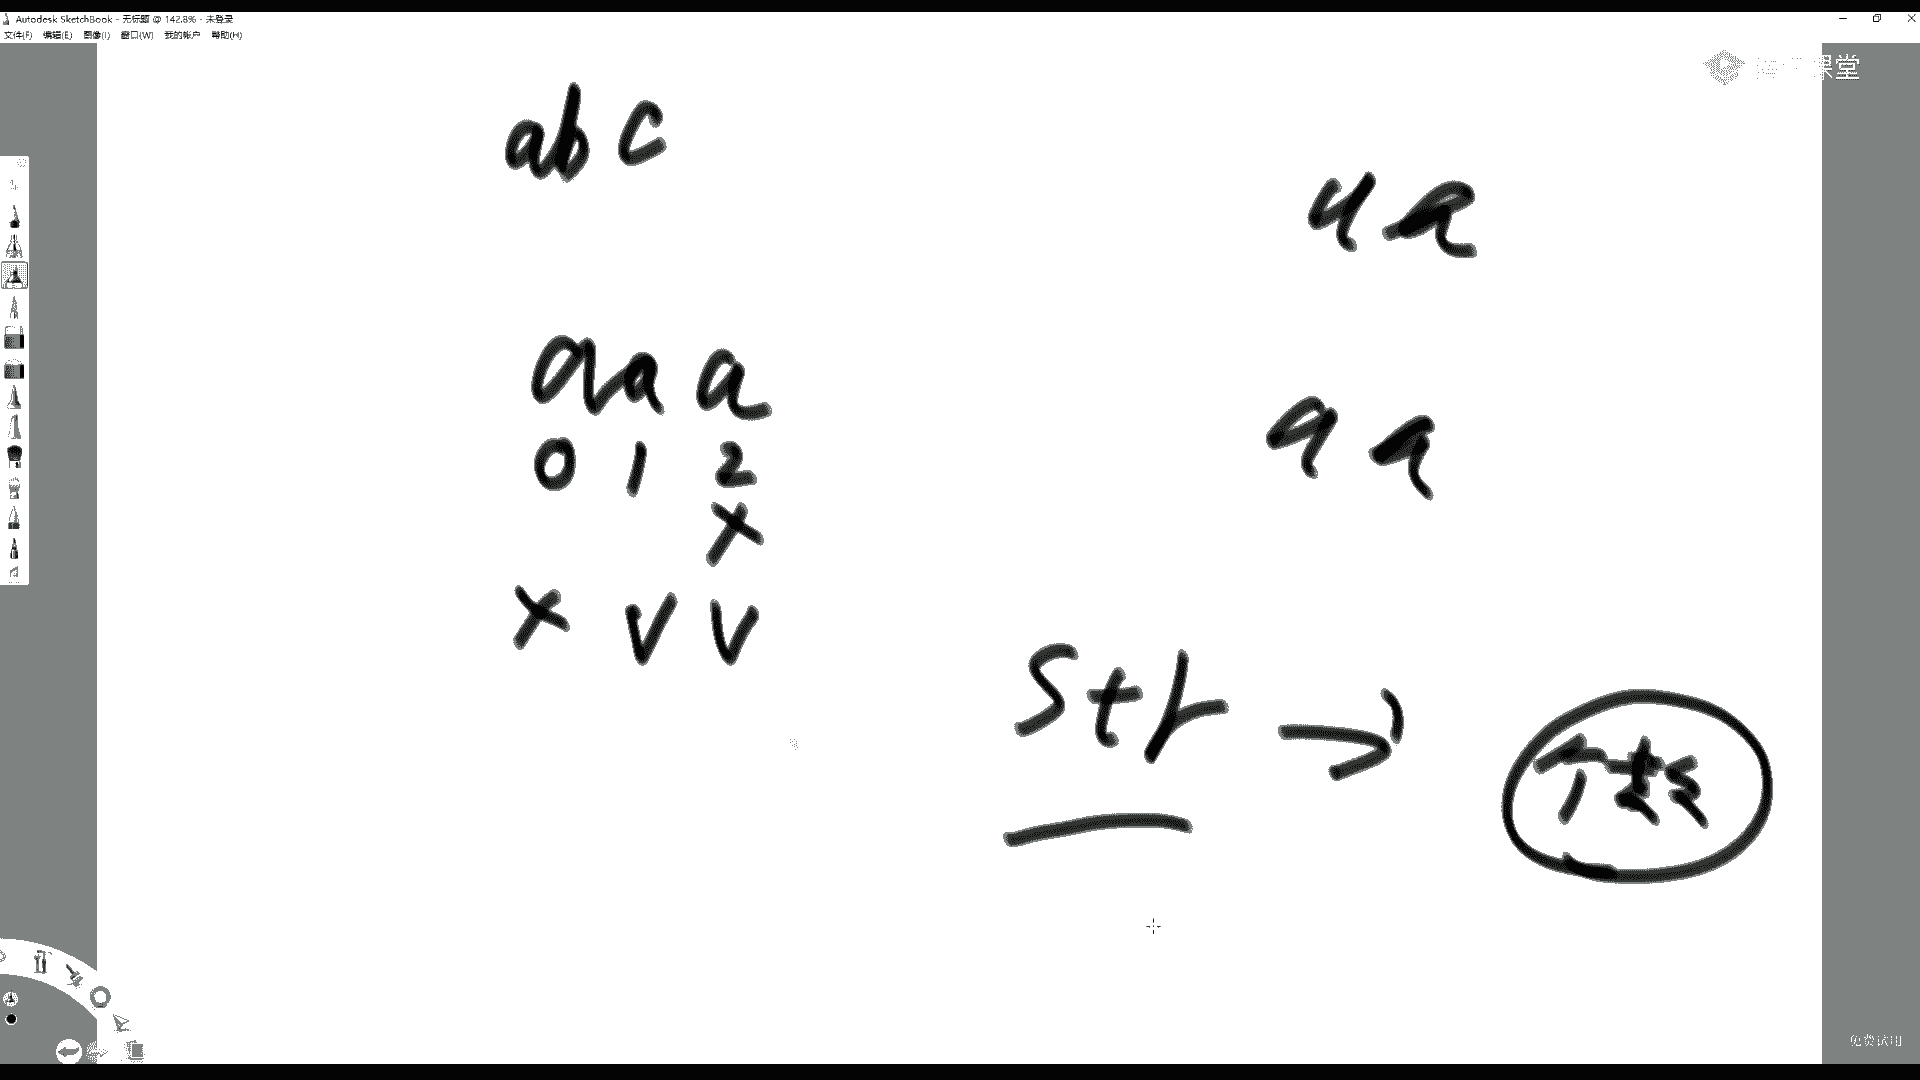 Autodesk SketchBook - 无标题 @ 142.8% - 未登录
文件(F) 编辑(E) 图像(I) 窗口(W) 我的帐户 帮助(H)
课堂
abc
aa
aaa
aa
0 1 2
x
x v v
Str → 个数
免费试用